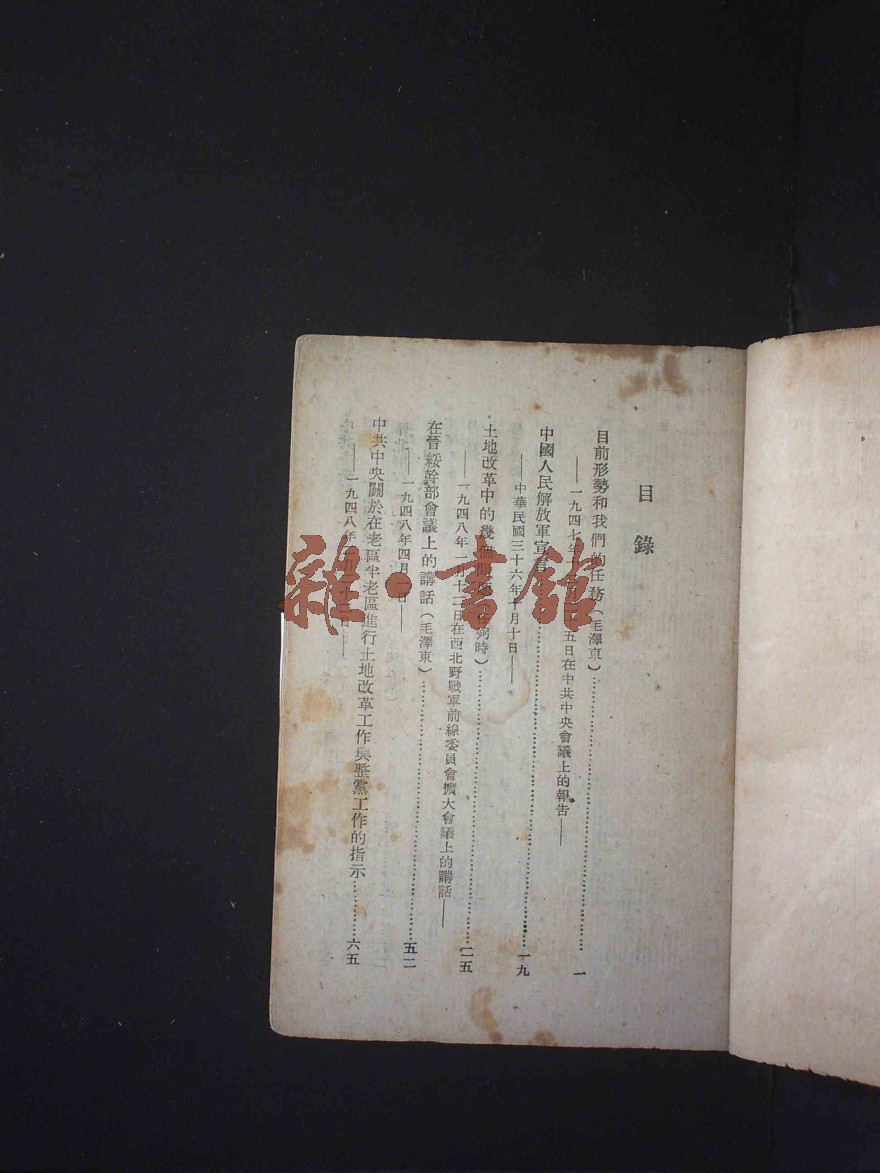 目錄
目前形勢和我們的任務(毛澤東)……一
——一九四七年 二十五日在中共中央會議上的報告——
中國人民解放軍宣言……一九
——中華民國三十六年十月十日——
土地改革中的幾個問題 任弼時)……二五
——一九四八年一月十二日在西北野戰軍前線委員會擴大會議上的講話——
在晉綏幹部會議上的講話(毛澤東)……五二
——一九四八年四月一日——
中共中央關於在老區半老區進行土地改革工作與整黨工作的指示……六五
——一九四八年 月 十 日——
雜·書館